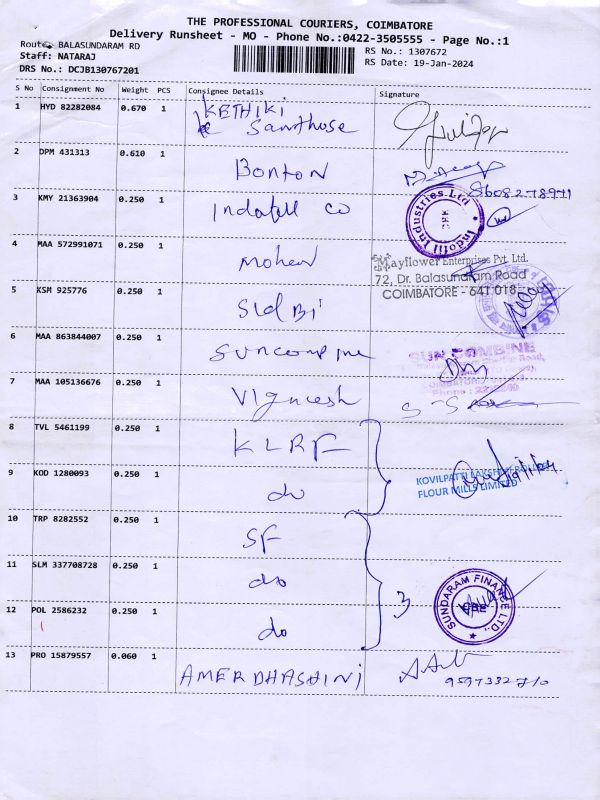 THE PROFESSIONAL COURIERS, COIMBATORE
Delivery Runsheet - MO - Phone No.:0422-3505555 - Page No.:1
Route: BALASUNDARAM RD
RS No.: 1307672
Staff: NATARAJ
RS Date: 19-Jan-2024
DRS No.: DCJB130767201
S No Consignment No Weight PCS Consignee Details Signature
1 HYD 82282084 0.670 1 KETHIKI
Santhose
2 DPM 431313 0.610 1 Bonton
8608278971
3 KMY 21363904 0.250 1 Indofill co
Indofil Industries Ltd
4 MAA 572991071 0.250 1 Mohan
Mayflower Enterprises Pvt. Ltd.
72, Dr. Balasundaram Road
COIMBATORE - 641 018
5 KSM 925776 0.250 1 SIdBi
6 MAA 863844007 0.250 1 Suncompine
SUN COMBINE
7 MAA 105136676 0.250 1 Vignesh
8 TVL 5461199 0.250 1 KLRF
9 KOD 1280093 0.250 1 do
KOVILPATTI LAKSHMI ROLLER
FLOUR MILLS LIMITED
10 TRP 8282552 0.250 1 SF
11 SLM 337708728 0.250 1 do
3
SUNDARAM FINANCE LTD.,
CBE
12 POL 2586232 0.250 1 do
13 PRO 15879557 0.060 1 AMERDHASHINI